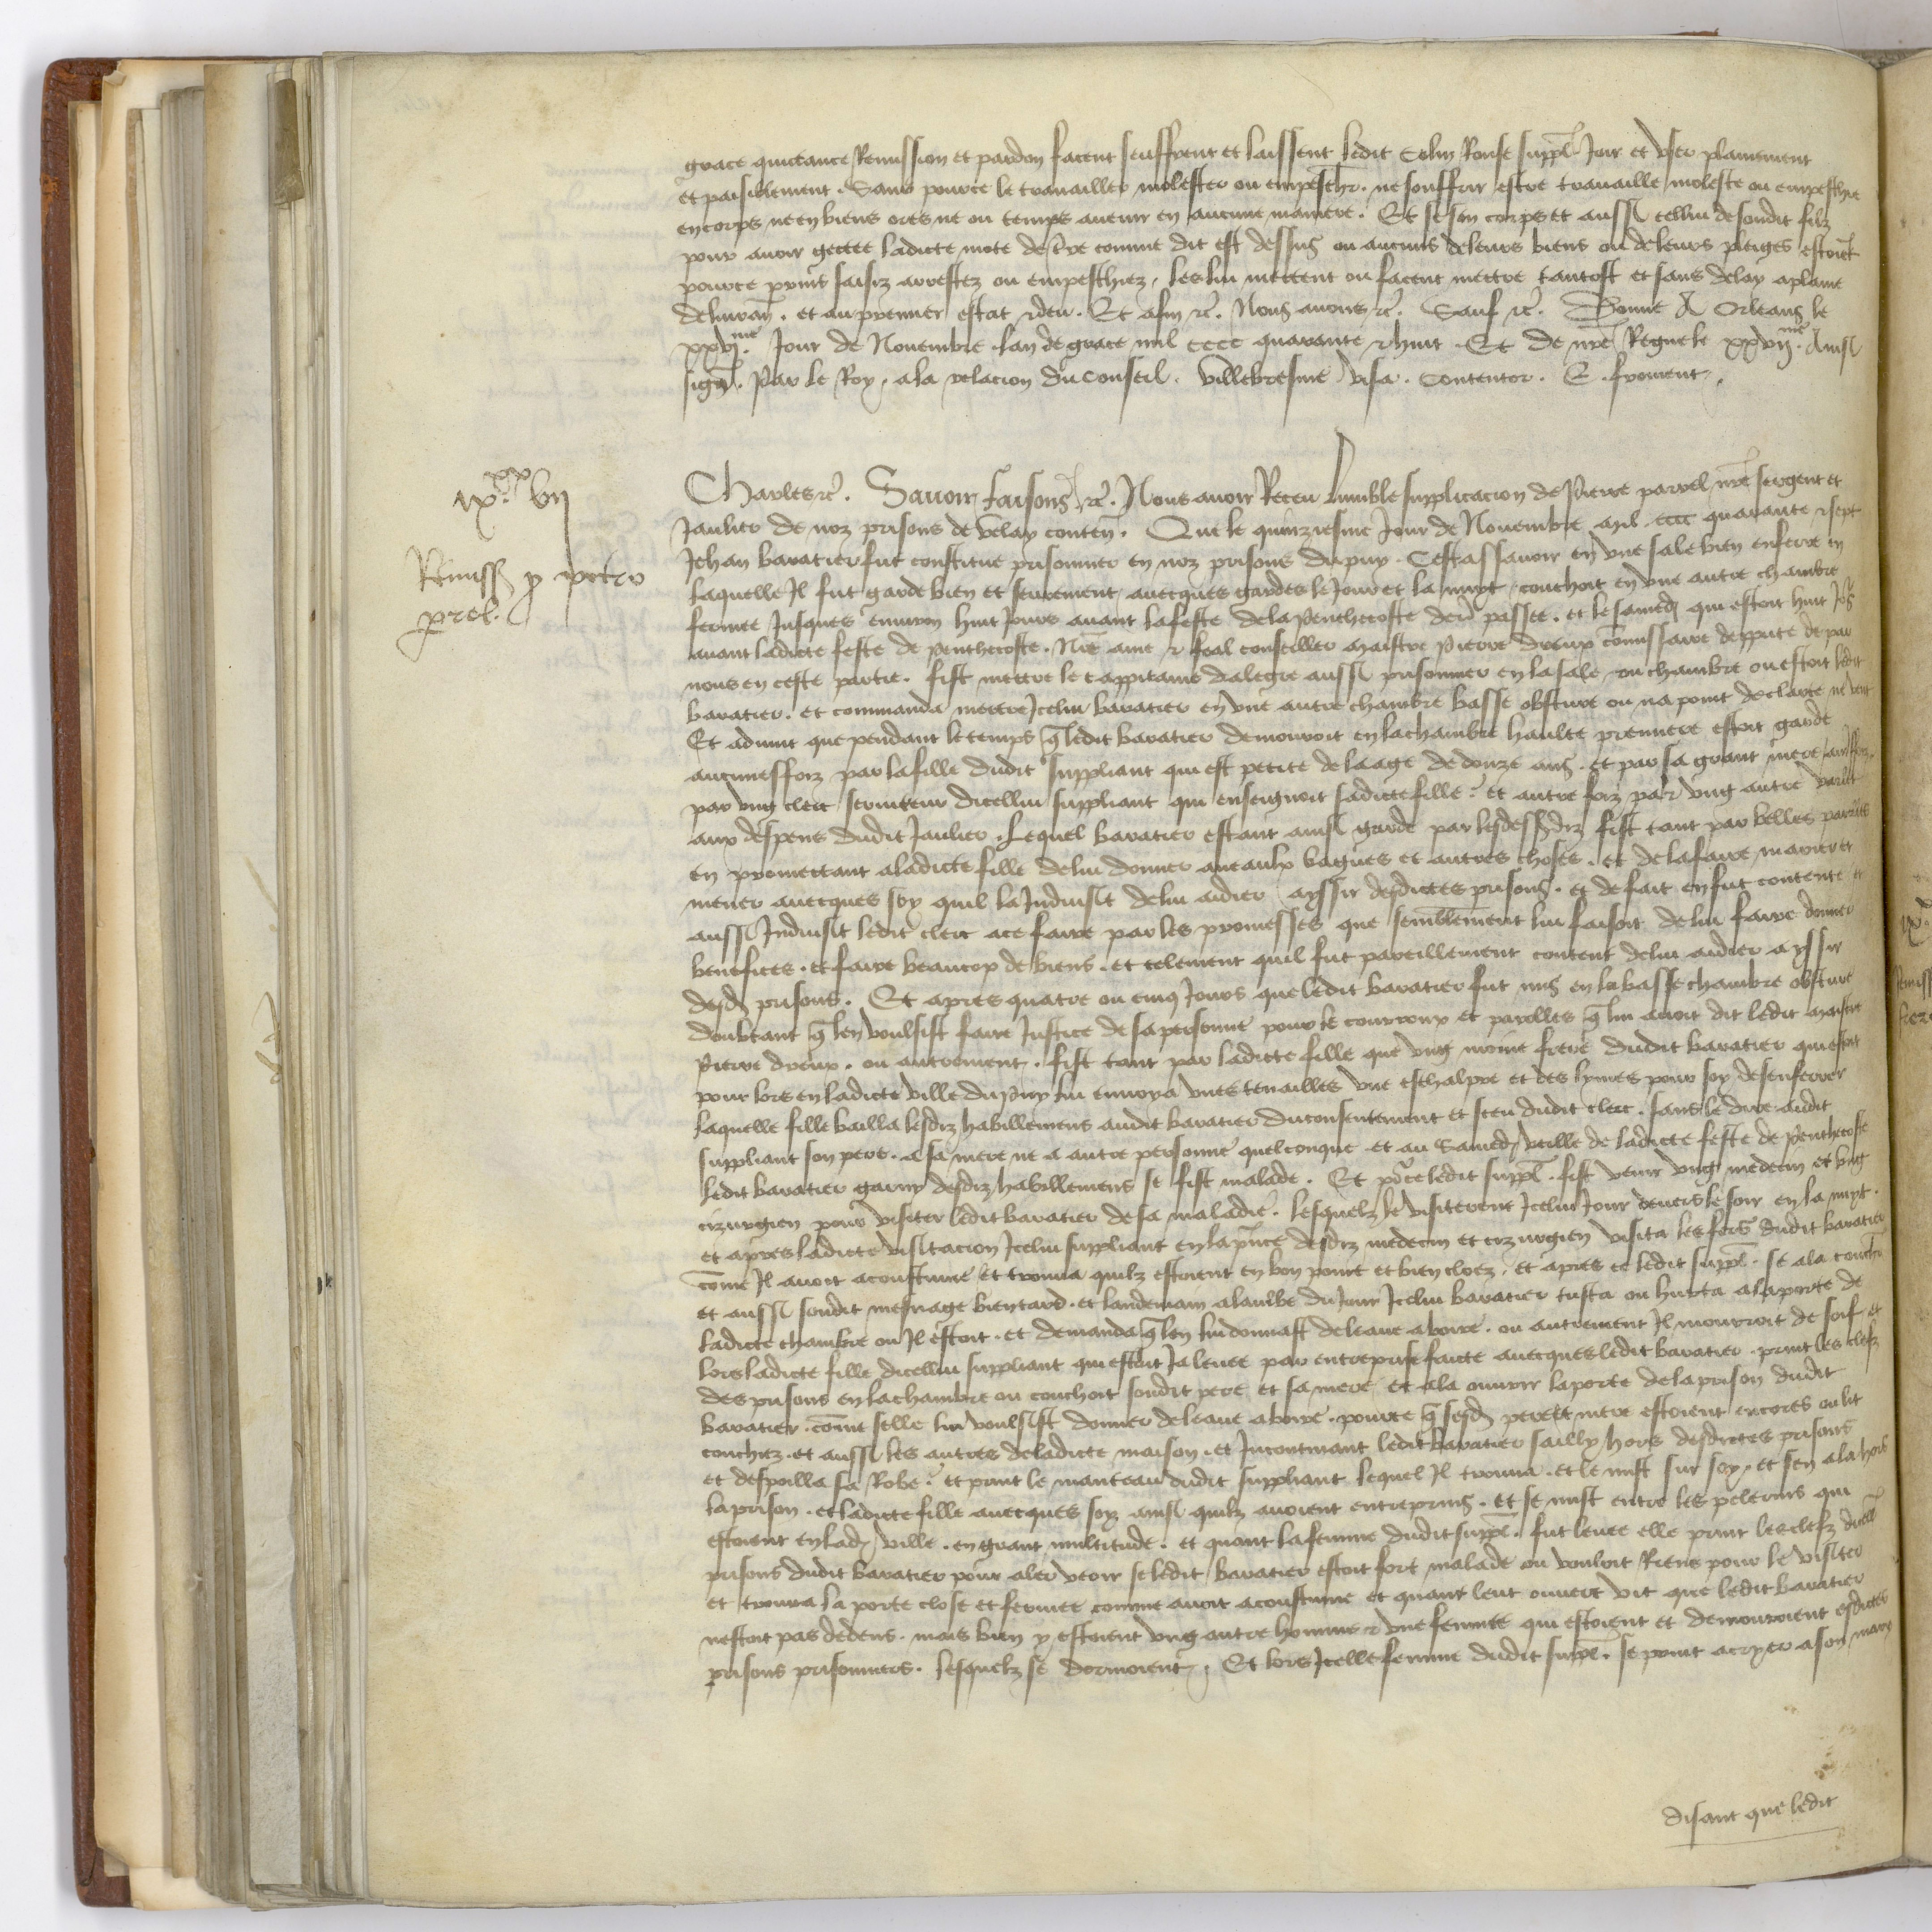 grace quictance Remission et pardon facent seuffrent et laissent ledit Colin Rouse suppl Joir et user plainement
et paisiblement. Sans pource le travailler molester ou empescher. ne souffrir estre travaille moleste ou empeschie
en corps ne en biens ores ne ou temps avenir en aucune maniere. Et se son corps et aussi cellui de sondit filz
pour avoir gectee ladicte mote de tre comme dit est dessus ou aucuns de leurs biens ou de leurs pleiges estoient
pource prins saisiz arrestez ou empeschiez, les lui mettent ou facent mettre tantost et sans delay a plaine
delivran. et au premier estat et deu. Et afin etc. Nous avons etc. Sauf etc. Donne A Orleans le
xxvj me Jour de Novembre lan de grace mil cccc quarante et huit. Et de nre Regne le xxvij me. Ainsi
signe. Par le Roy, a la relacion du Conseil. Villebresme visa. Contentor. E. froment.
ix xx vij
Remiss p petro
prel.
Charles etc. Savoir faisons etc. Nous avoir Receu lumble supplicacion de Pierre parrel nre sergent et
Jaulier de noz prisons de velay conten. Que le quinziesme Jour de Novembre mil cccc quarante et sept
Jehan baratier fut constitue prisonnier en noz prisons du puy. Cestassavoir en une sale bien enferre en
laquelle Il fut garde bien et seurement avecques gardes le Jour et la nuyt couchoit en une autre chambre
fermee Jusques environ huit Jours avant la feste de la Penthecoste derr passee. et le samedi qui estoit huit Jos
avant ladicte feste de Penthecoste. Nre ame et feal conseiller maistre Pierre dreux commissaire deppute de par
nous en ceste partie. fist mettre le cappitaine dalegre aussi prisonnier en la sale ou chambre ou estoit ledit
baratier. et commanda mettre Icelui baratier en une autre chambre basse obscure ou na point de clarte ne vent
Et advint que pendant le temps q ledit baratier demouroit en la chambre haulte premiere estoit garde
aucunesfoiz par la fille dudit suppliant qui est petite de laage de donze ans. et par sa grant mere aucunsfoiz
par ung clerc serviteur dicellui suppliant qui enseignoit sadicte fille. et autre foiz par ung autre varlet
aux despens dudit Jaulier. Lequel baratier estant ainsi garde par les dessusdiz fist tant par belles parolles
en promettant a ladicte fille de lui donner aneaulx bagues et autres choses. et de la faire marier et
mener avecques soy quil la Induisit de lui aidier a yssir desdictes prisons. et de fait en fut contente et
aussi Induisit ledit clerc a ce faire par les promesses que semblement lui faisoit de lui faire donner
benefices. et faire beaucop de biens. et telement quil fut pareillement content de lui aidier a yssir
desd prisons. Et apres quatre ou cinq Jours que ledit baratier fut mis en la basse chambre obscure
doubtant q len voulsist faire Justice de sa personne pour le courroux et parolles q lui avoit dit ledit maistre
Pierre dreux. ou autrement. fist tant par ladicte fille que ung moine frere dudit baratier qui estoit
pour lors en ladicte ville du Puy lui envoya unes tenailles une eschalpre et des lymes pour soy desenferrer
laquelle fille bailla lesdiz habillemens audit baratier du consentement et sceu dudit clerc. sans le dire audit
suppliant son pere. a sa mere ne a autre personne quelconque et au Samedi veille de ladicte feste de Penthecoste
ledit baratier garny desdiz habillemens se fist malade. Et pource ledit suppl. fist venir ung medecin et ung
cirurgien pour visiter ledit baratier de sa maladie. lesquelz le visiterent Icelui Jour devers le soir en la nuyt.
et apres ladicte visitacion Icelui suppliant en la pnce desdiz medecin et cirurgien visita les fers dudit baratier
come Il avoit acoustume et trouva quilz estoient en bon point et bien cloez. et apres ce ledit suppl. se ala coucher
et aussi sondit mesnage bien tard. et landemain a laulbe du Jour Icelui baratier tusta ou hurta a la porte de
ladicte chambre ou Il estoit. et demanda q len lui donnast de leaue a boire. ou autrement Il mourroit de soif et
lors ladicte fille dicellui suppliant qui estoit Ja levee par entreprise faicte avecques ledit baratier. print les clefz
des prisons en la chambre ou couchoit sondit pere et sa mere et ala ouvrir la porte de la prison dudit
baratier. come selle lui voulsist donner de leaue a boire. pource q sesd pere et mere estoient encores ou lit
couchez. et aussi les autres de ladicte maison. et Incontinant ledit baratier sailly hors desdictes prisons
et despoilla sa Robe. et print le manteau dudit suppliant lequel Il trouva. et le mist sur soy. et sen ala hors
la prison. et ladicte fille avecques soy ainsi quilz avoient entreprins. et se mist entre les pelerins qui
estoient en lad ville. en grant multitude. et quant la femme dudit suppl. fut levee elle print les clefz dicell
prisons dudit baratier pour aler veoir se ledit baratier estoit fort malade ou vouloit Riens pour le visiter
et trouva la porte close et fermee comme avoit acoustume et quant leut ouverte vit que ledit baratier
nestoit pas dedens. mais bien y estoient ung autre homme et une femme qui estoient et demouroient esdictes
prisons prisonniers. lesquelz se dormoient. Et lors Icelle femme dudit suppl. se print a cryer a son mary
disant que ledit